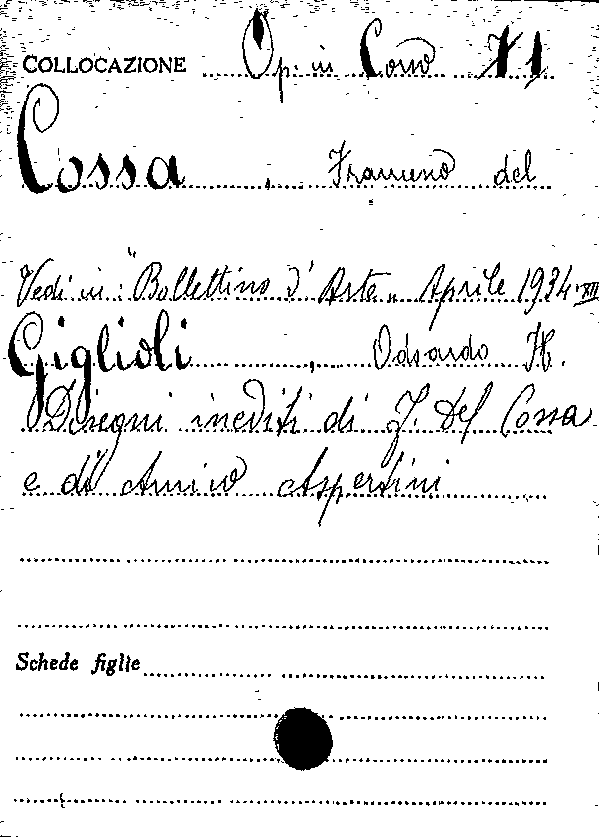 COLLOCAZIONE Op. in Corso 71
Cossa, Francesco del
Vedi in: "Bollettino d'Arte" Aprile 1934-XII
Giglioli, Odoardo H.
Disegni inediti di F. del Cossa
e di Amico Aspertini
Schede figlie